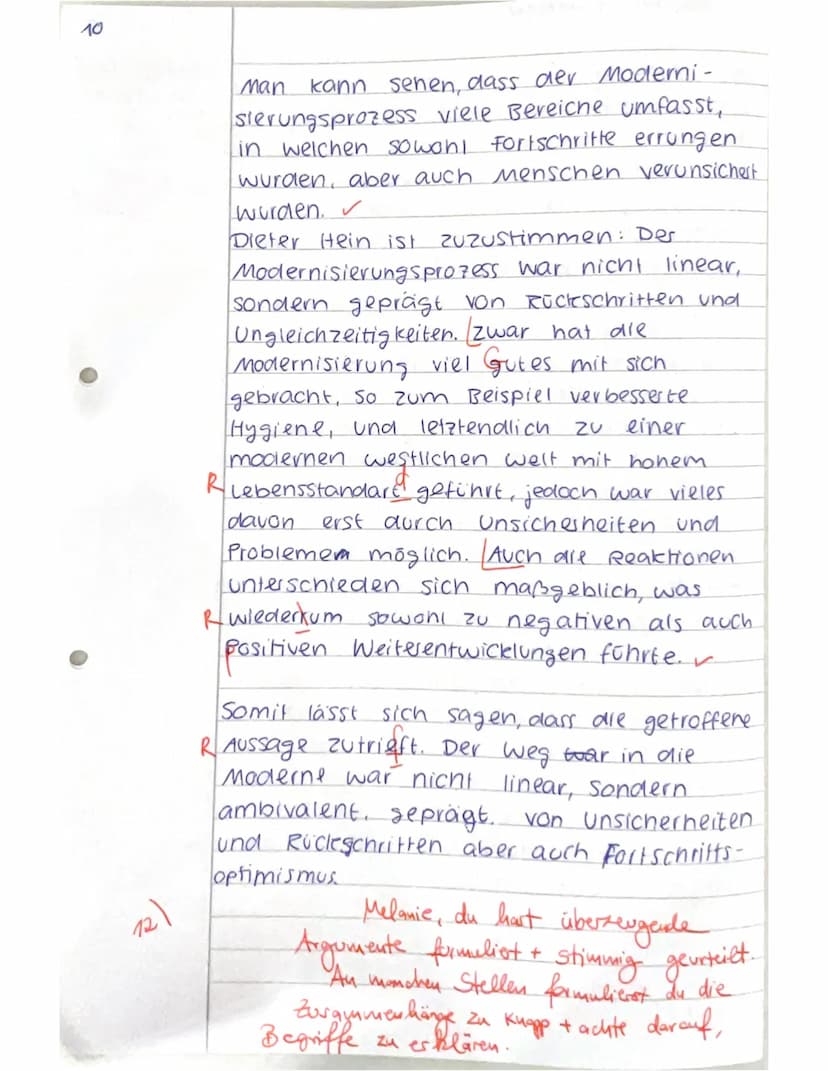 10
Man kann sehen, dass der Moderni-
sierungsprozess viele Bereiche umfasst,
in welchen sowohl Fortschritte errungen
wurden, aber auch Menschen verunsichert
wurden. ✓
Dieter Hein ist zuzustimmen: Der
Modernisierungsprozess war nicht linear,
sondern geprägt von Rückschritten und
Ungleichzeitigkeiten. Zwar hat die
Modernisierung viel Gutes mit sich
gebracht, so zum Beispiel verbesserte
Hygiene, und letztendlich zu einer
modernen westlichen Welt mit hohem
R Lebensstandart d geführt, jedoch war vieles
davon erst durch Unsicherheiten und
Probleme möglich. Auch die Reaktionen
unterschieden sich maßgeblich, was
R wiederkum sowohl zu negativen als auch
positiven Weiterentwicklungen führte. ✓
Somit lässt sich sagen, dass die getroffene
R Aussage zutrieft. f Der Weg in die
Moderne war nicht linear, sondern
ambivalent, geprägt von Unsicherheiten
und Rückschritten aber auch Fortschritts-
optimismus
12)
Melanie, du hast überzeugende
Argumente formuliert + stimmig geurteilt.
An manchen Stellen formulierst du die
Zusammenhänge zu knapp + achte darauf,
Begriffe zu erklären.